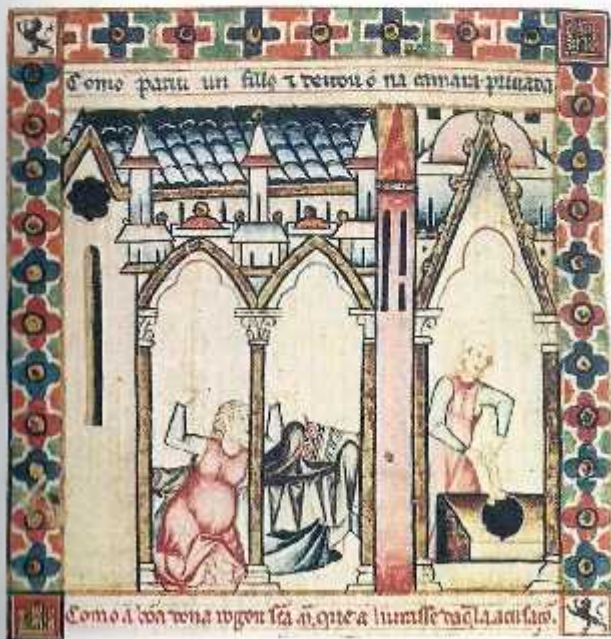 Como pariu un fillo ⁊ deitou ó na camara priuada
Como a bõa dona rogou sc̃a m̃. que a liurasse daq̃la acusaçõ.